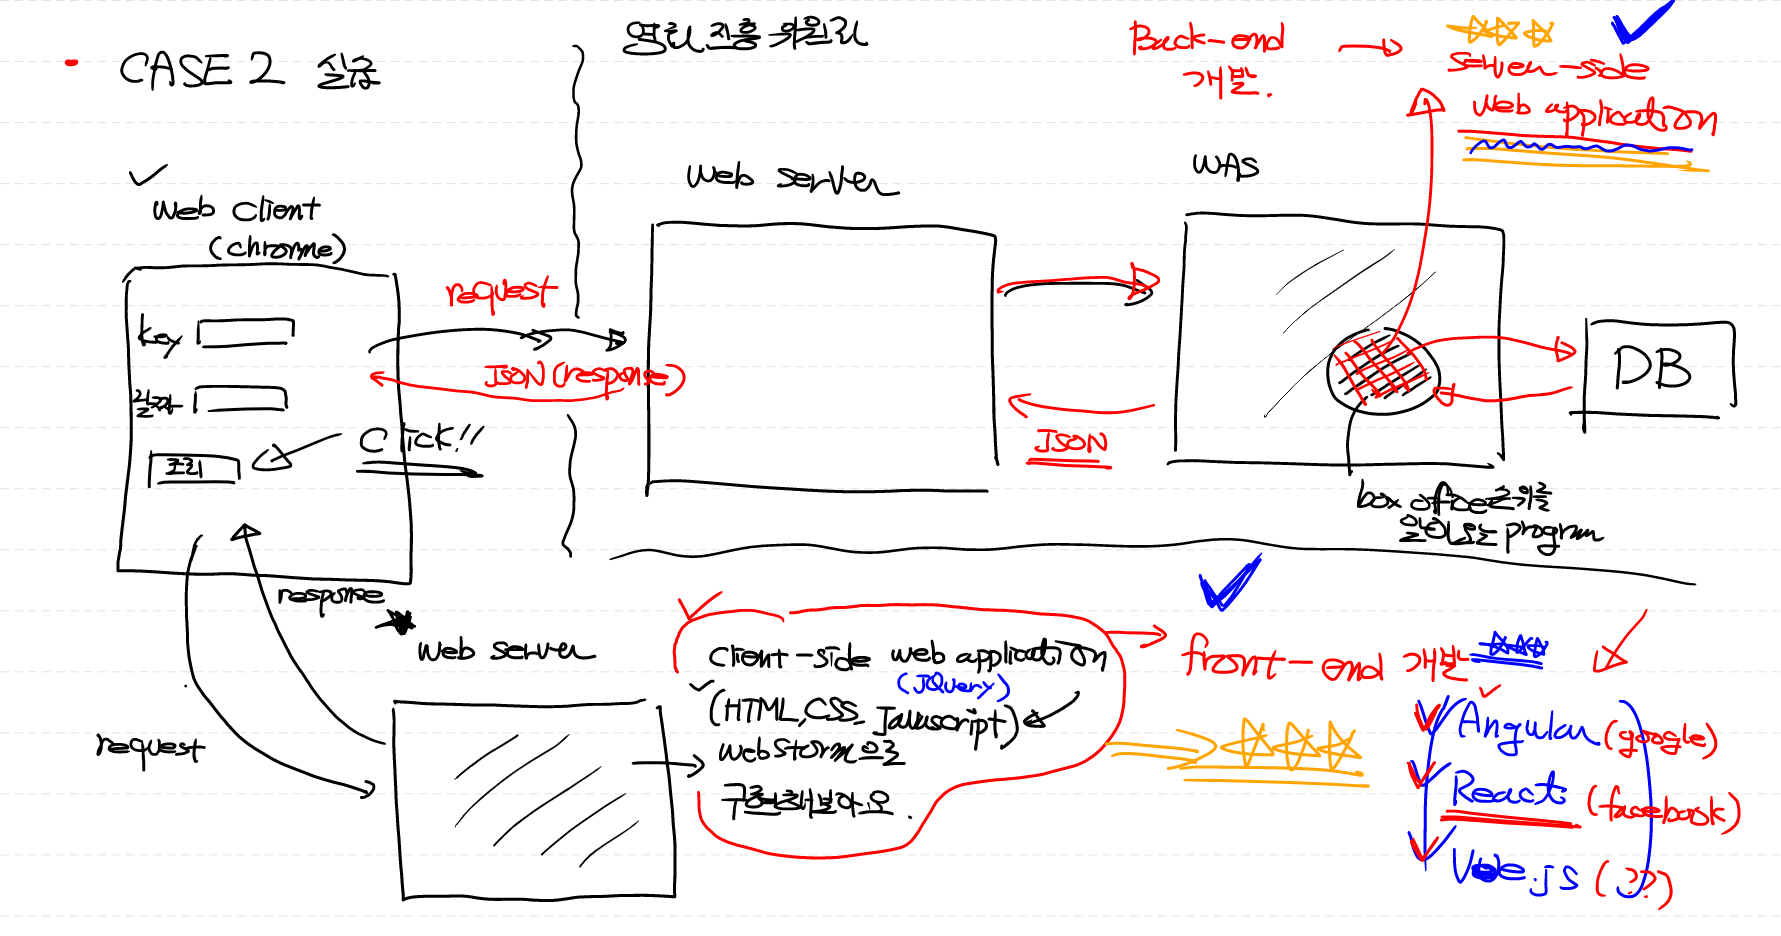 CASE 2 실습
영화진흥위원회
Back-end
개발.
server-side
web application
web client
(chrome)
key
날짜
조회
click!!
request
JSON (response)
web server
JSON
WAS
DB
box office순위를
알아오는 program
response
request
web server
client-side web application
(JQuery)
(HTML, CSS, Javascript)
webstorm으로
구현해보아요.
front-end 개발
Angular (google)
React (facebook)
Vue.js (??)